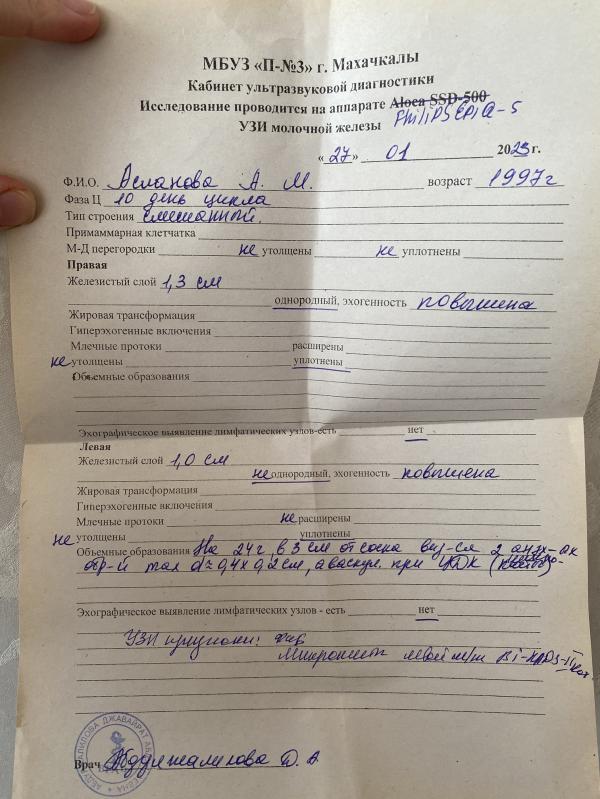 МБУЗ «П-№3» г. Махачкалы
Кабинет ультразвуковой диагностики
Исследование проводится на аппарате Aloca SSD-500
PHILIPS EPIQ-5
УЗИ молочной железы
«27» 01 2023 г.
Ф.И.О. Асланова А. М. возраст 1997г
Фаза Ц 10 день цикла
Тип строения смешанный.
Примаммарная клетчатка
М-Д перегородки не утолщены не уплотнены
Правая
Железистый слой 1,3 см
однородный, эхогенность повышена
Жировая трансформация
Гиперэхогенные включения
Млечные протоки расширены
не утолщены уплотнены
Объемные образования
Эхографическое выявление лимфатических узлов-есть нет
Левая
Железистый слой 1,0 см
неоднородный, эхогенность повышена
Жировая трансформация
Гиперэхогенные включения
Млечные протоки не расширены
не утолщены уплотнены
Объемные образования На 24г, в 3 см от соска виз-ся 2
обр-й max d≈0,4х0,2см, аваскул. при ЦДК
Эхографическое выявление лимфатических узлов - есть нет
УЗИ признаки:
левой м/ж Bi-RADS-II
Врач Абдулжалилова Д. А